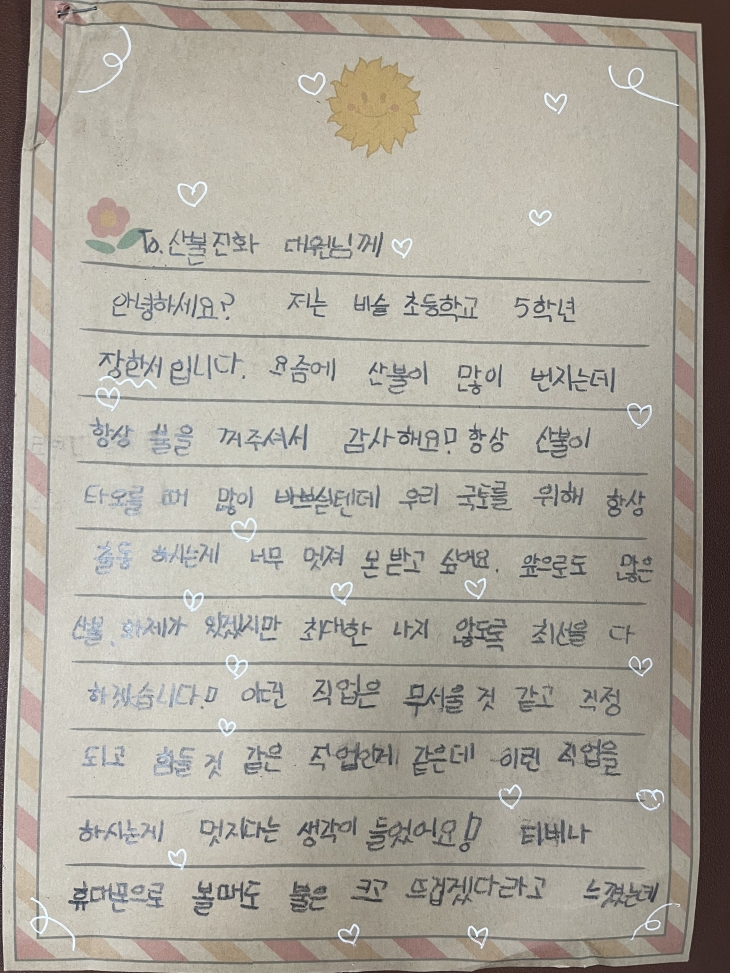 To.산불진화 대원님께
안녕하세요? 저는 비슬 초등학교 5학년
장한서 입니다. 요즘에 산불이 많이 번지는데
항상 불을 꺼주셔서 감사해요! 항상 산불이
타오를 때 많이 바쁘실텐데 우리 국토를 위해 항상
출동 하시는게 너무 멋져 본받고 싶어요. 앞으로도 많은
산불, 화제가 있겠지만 최대한 나지 않도록 최선을 다
하겠습니다.! 이런 직업은 무서울 것 같고 걱정
되고 힘들 것 같은 직업인게 같은데 이런 직업을
하시는게 멋지다는 생각이 들었어요! 티비나
휴대폰으로 볼때도 불은 크고 뜨겁겠다라고 느꼈는데